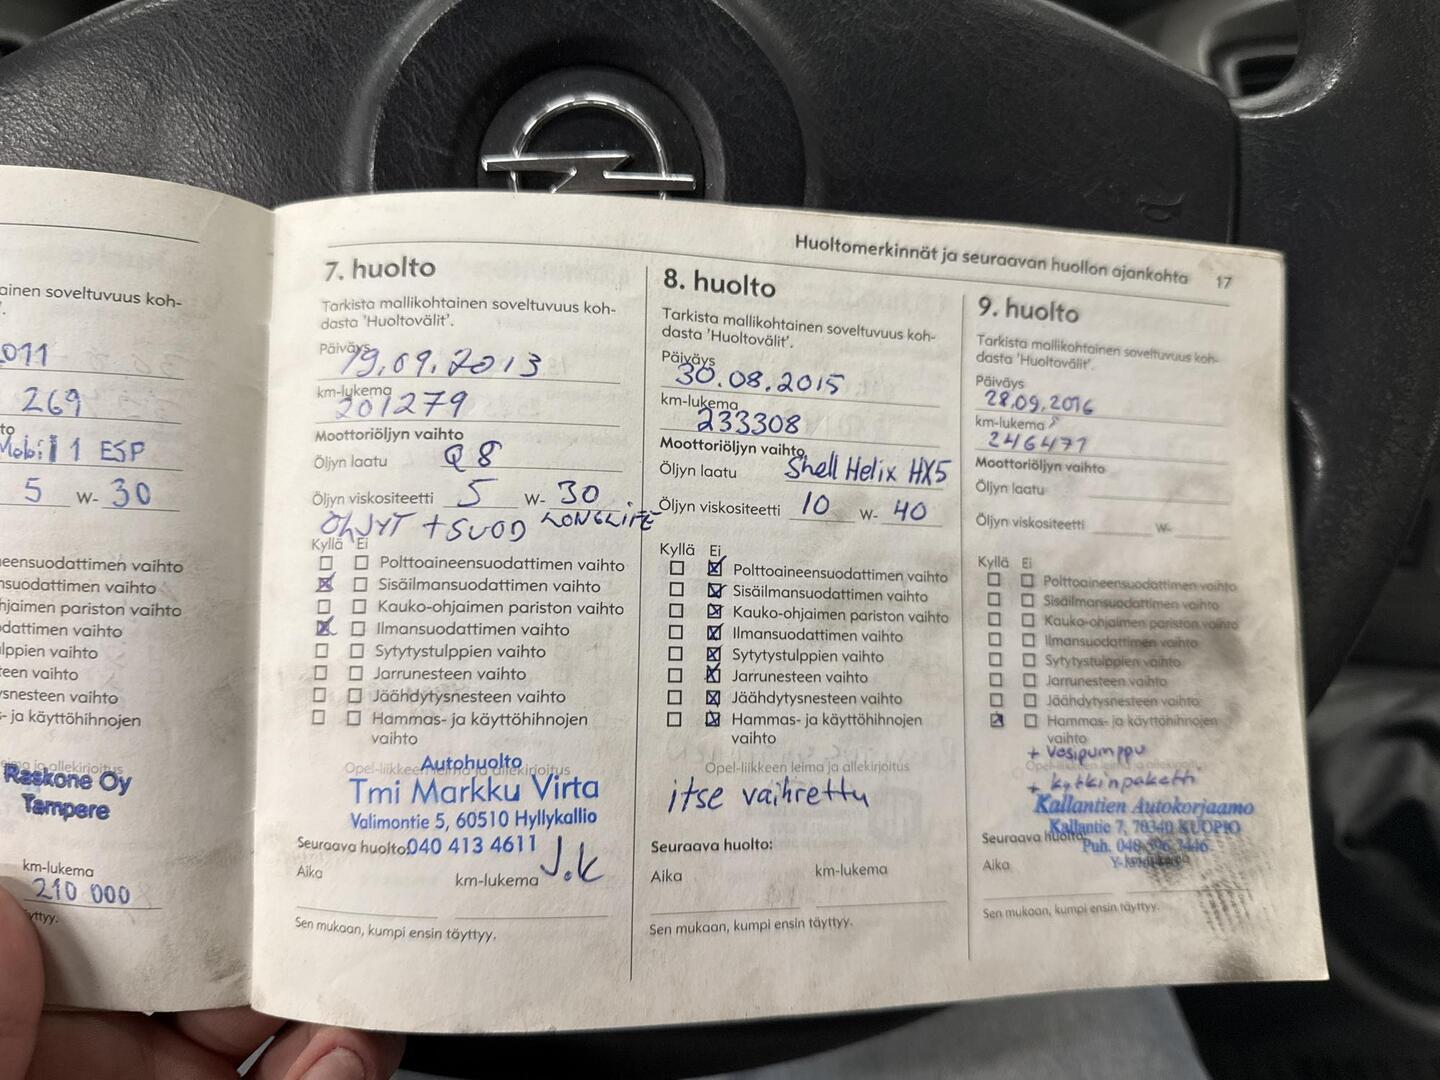 ainen soveltuvuus koh-
011
269
Mobil 1 ESP
5 W- 30
neensuodattimen vaihto
nsuodattimen vaihto
hjaimen pariston vaihto
odattimen vaihto
ulppien vaihto
teen vaihto
snesteen vaihto
s- ja käyttöhihnojen
Raskone Oy
Tampere
km-lukema
210 000
yttyy.
Huoltomerkinnät ja seuraavan huollon ajankohta 17
7. huolto
Tarkista mallikohtainen soveltuvuus koh-
dasta 'Huoltovälit'.
Päiväys 19.09.2013
km-lukema 201279
Moottoriöljyn vaihto
Öljyn laatu Q8
Öljyn viskositeetti 5 W- 30
ÖLJYT + SUOD LONGLIFE
Kyllä Ei
Polttoaineensuodattimen vaihto
Sisäilmansuodattimen vaihto
Kauko-ohjaimen pariston vaihto
Ilmansuodattimen vaihto
Sytytystulppien vaihto
Jarrunesteen vaihto
Jäähdytysnesteen vaihto
Hammas- ja käyttöhihnojen
vaihto
Opel-liikkeen leima ja allekirjoitus
Autohuolto
Tmi Markku Virta
Valimontie 5, 60510 Hyllykallio
040 413 4611 J.K
Seuraava huolto:
Aika km-lukema
Sen mukaan, kumpi ensin täyttyy.
8. huolto
Tarkista mallikohtainen soveltuvuus koh-
dasta 'Huoltovälit'.
Päiväys 30.08.2015
km-lukema 233308
Moottoriöljyn vaihto
Öljyn laatu Shell Helix HX5
Öljyn viskositeetti 10 W- 40
Kyllä Ei
Polttoaineensuodattimen vaihto
Sisäilmansuodattimen vaihto
Kauko-ohjaimen pariston vaihto
Ilmansuodattimen vaihto
Sytytystulppien vaihto
Jarrunesteen vaihto
Jäähdytysnesteen vaihto
Hammas- ja käyttöhihnojen
vaihto
Opel-liikkeen leima ja allekirjoitus
itse vaihrettu
Seuraava huolto:
Aika km-lukema
Sen mukaan, kumpi ensin täyttyy.
9. huolto
Tarkista mallikohtainen soveltuvuus koh-
dasta 'Huoltovälit'.
Päiväys
28.09.2016
km-lukema
246471
Moottoriöljyn vaihto
Öljyn laatu
Öljyn viskositeetti W-
Kyllä Ei
Polttoaineensuodattimen vaihto
Sisäilmansuodattimen vaihto
Kauko-ohjaimen pariston vaihto
Ilmansuodattimen vaihto
Sytytystulppien vaihto
Jarrunesteen vaihto
Jäähdytysnesteen vaihto
Hammas- ja käyttöhihnojen
vaihto
+ Vesipumppu
Opel-liikkeen leima ja allekirjoitus
+ kytkinpaketti
Kallantien Autokorjaamo
Kallantie 7, 70340 KUOPIO
Seuraava huolto:
Puh.
Aika
Sen mukaan, kumpi ensin täyttyy.